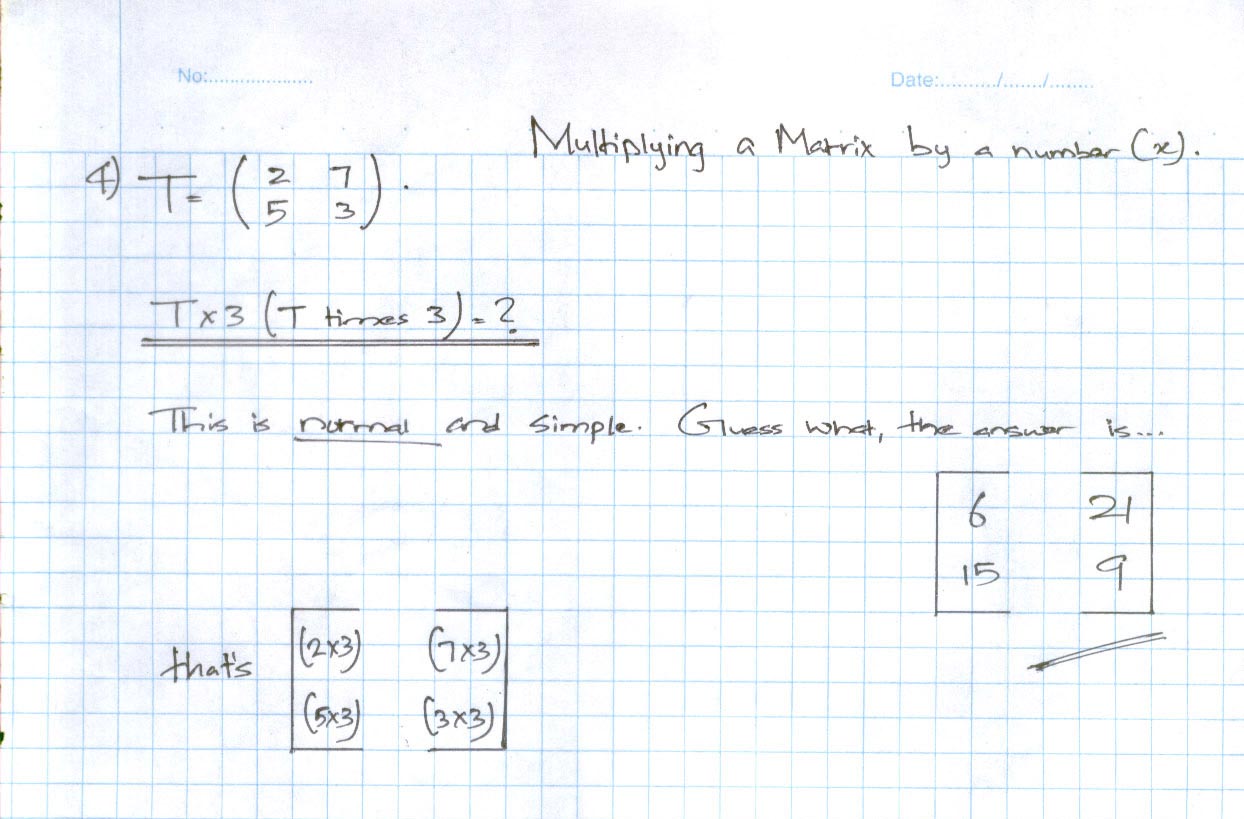 No:.................... Date:........../......./........
Multiplying a Matrix by a number (x).
4) T = ( 2 7
5 3 ) .
T x 3 (T times 3) = ?
This is normal and simple. Guess what, the answer is...
6 21
15 9
that's (2x3) (7x3)
(5x3) (3x3)